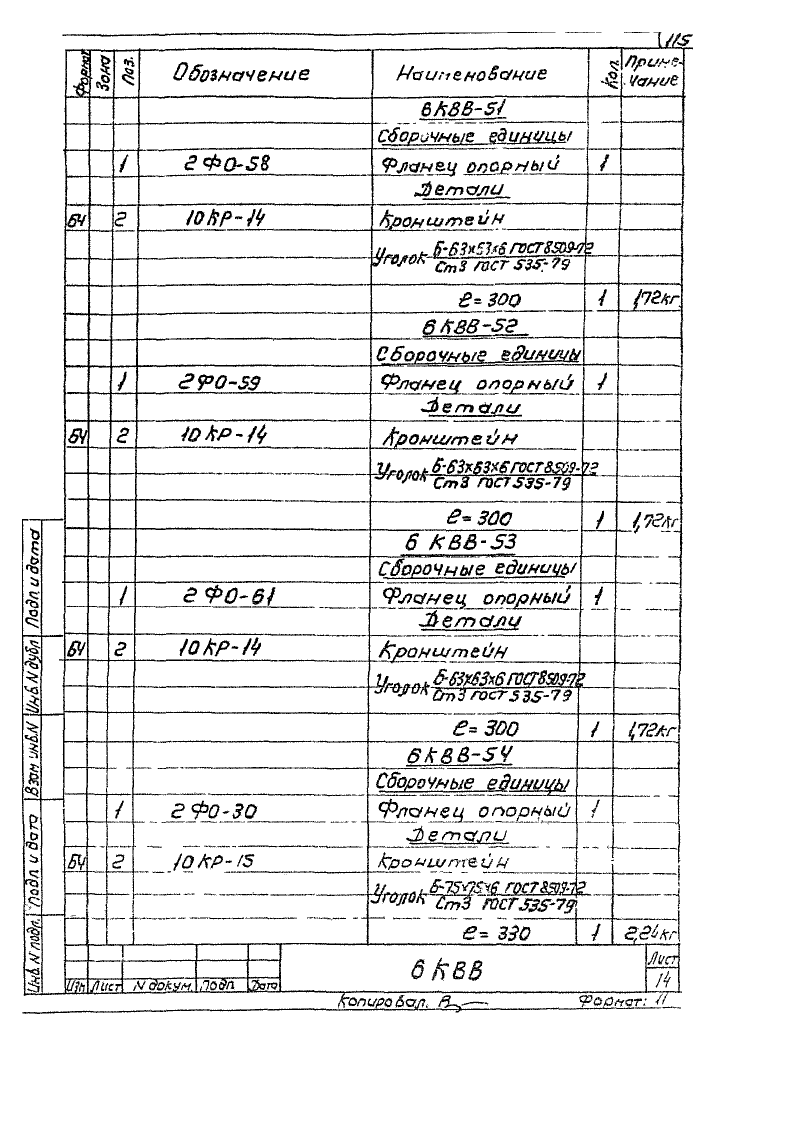 115
Формат Зона Поз. Обозначение Наименование Кол. Приме-
чание
6КВВ-51
Сборочные единицы
1 2ФО-58 Фланец опорный 1
Детали
БЧ 2 10КР-14 Кронштейн
Уголок Б-63х63х6 ГОСТ 8509-72
Ст3 ГОСТ 535-79
ℓ=300 1 1,72кг
6КВВ-52
Сборочные единицы
1 2ФО-59 Фланец опорный 1
Детали
БЧ 2 10КР-14 Кронштейн
Уголок Б-63х63х6 ГОСТ 8509-72
Ст3 ГОСТ 535-79
ℓ=300 1 1,72кг
6 КВВ-53
Сборочные единицы
1 2ФО-61 Фланец опорный 1
Детали
БЧ 2 10КР-14 Кронштейн
Уголок Б-63х63х6 ГОСТ 8509-72
Ст3 ГОСТ 535-79
ℓ=300 1 1,72кг
6КВВ-54
Сборочные единицы
1 2ФО-30 Фланец опорный 1
Детали
БЧ 2 10КР-15 Кронштейн
Уголок Б-75х75х6 ГОСТ 8509-72
Ст3 ГОСТ 535-79
ℓ=330 1 2,24кг
Инв. N подл. Подп и дата Взам инв.N Инв N дубл Подп и дата
6КВВ
Лист
14
Изм Лист N докум. Подп Дата
Копировал. Формат: 11